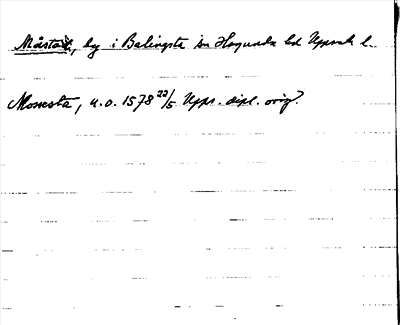 Måsta, by i Balingsta sn Hagunda hd Uppsala l.
Monesta, u.o. 1578 22/5 Upps. dipl. orig.